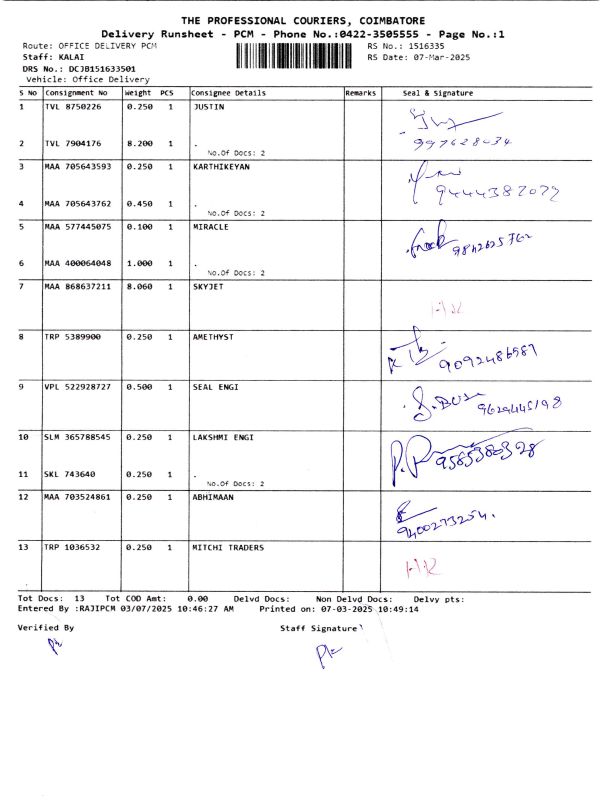 THE PROFESSIONAL COURIERS, COIMBATORE
Delivery Runsheet - PCM - Phone No.:0422-3505555 - Page No.:1
Route: OFFICE DELIVERY PCM RS No.: 1516335
Staff: KALAI RS Date: 07-Mar-2025
DRS No.: DCJB151633501
Vehicle: Office Delivery
S No Consignment No Weight PCS Consignee Details Remarks Seal & Signature
1 TVL 8750226 0.250 1 JUSTIN
2 TVL 7904176 8.200 1 .
No.Of Docs: 2
3 MAA 705643593 0.250 1 KARTHIKEYAN
9444387072
4 MAA 705643762 0.450 1 .
No.Of Docs: 2
5 MAA 577445075 0.100 1 MIRACLE
6 MAA 400064048 1.000 1 .
No.Of Docs: 2
7 MAA 868637211 8.060 1 SKYJET
8 TRP 5389900 0.250 1 AMETHYST
9092486987
9 VPL 522928727 0.500 1 SEAL ENGI
9629445198
10 SLM 365788545 0.250 1 LAKSHMI ENGI
9585380328
11 SKL 743640 0.250 1 .
No.Of Docs: 2
12 MAA 703524861 0.250 1 ABHIMAAN
9400273254.
13 TRP 1036532 0.250 1 MITCHI TRADERS
Tot Docs: 13 Tot COD Amt: 0.00 Delvd Docs: Non Delvd Docs: Delvy pts:
Entered By :RAJIPCM 03/07/2025 10:46:27 AM Printed on: 07-03-2025 10:49:14
Verified By Staff Signature